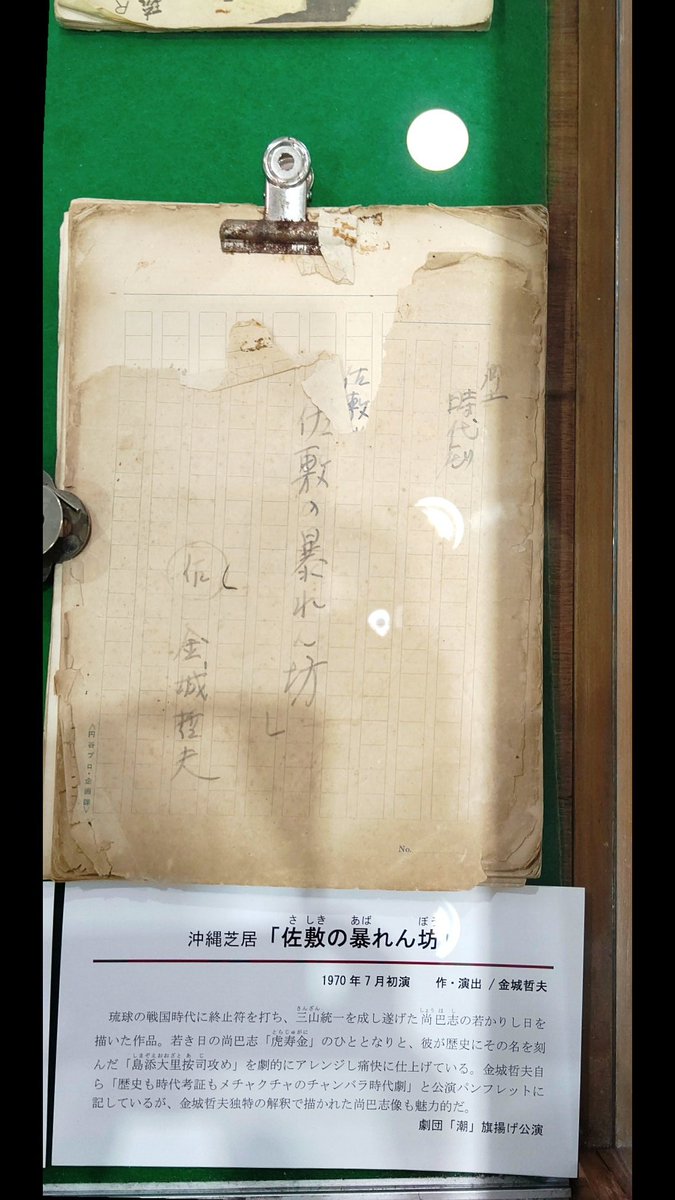 時代劇
佐敷
佐敷の暴れん坊」
作
金城哲夫
<円谷プロ・企画課>
No.
沖縄芝居「佐敷の暴れん坊」
1970年7月初演 作・演出/金城哲夫
琉球の戦国時代に終止符を打ち、三山統一を成し遂げた尚巴志の若かりし日を
描いた作品。若き日の尚巴志「虎寿金」のひととなりと、彼が歴史にその名を刻
んだ「島添大里按司攻め」を劇的にアレンジし痛快に仕上げている。金城哲夫自
ら「歴史も時代考証もメチャクチャのチャンバラ時代劇」と公演パンフレットに
記しているが、金城哲夫独特の解釈で描かれた尚巴志像も魅力的だ。
劇団「潮」旗揚げ公演